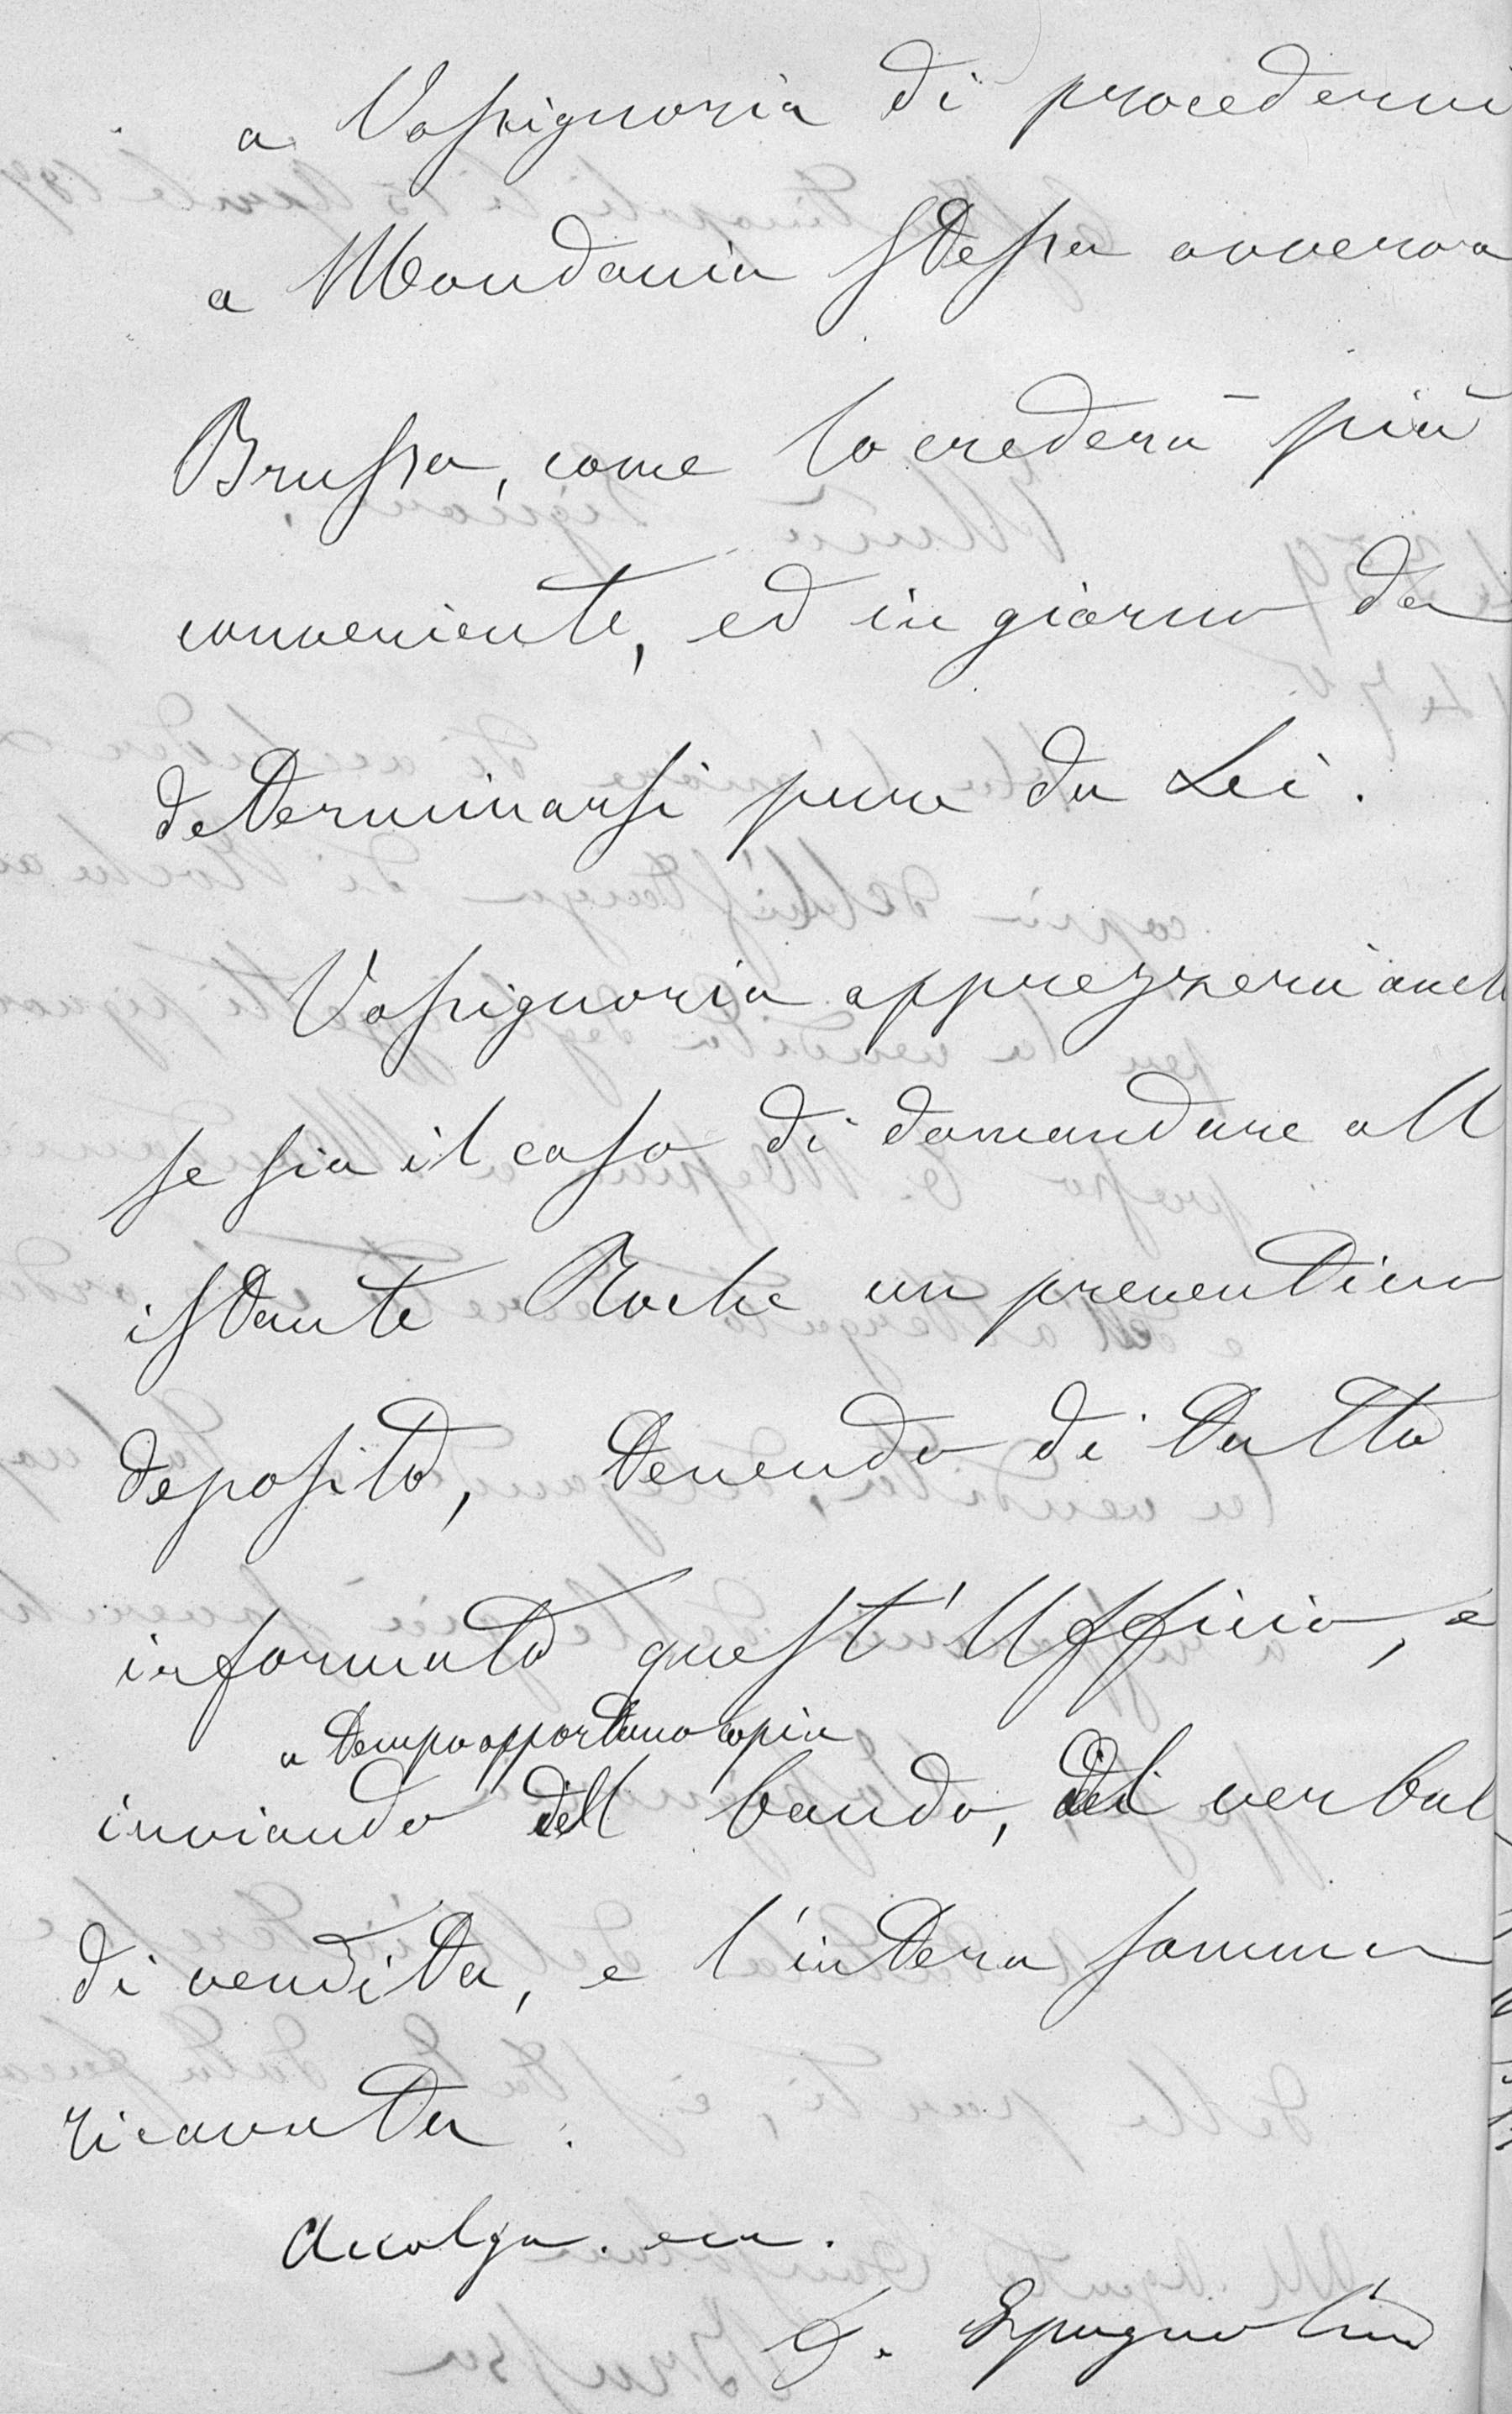 a Vossignoria di procedervi
a Moudania stessa ovvero a
Brussa, come lo crederà più
conveniente, ed in giorno da
determinarsi pure da Lei.
Vossignoria apprezzerà anch
se sia il caso di domandare all
istante Roche un preventivo
deposito, tenendo di tutto
informato quest'Ufficio, e
a tempo opportuno copia
inviando del bando, del verbal
di vendita, e l'intera somma
ricavata.
Accolga. ecc.
Spagnolini